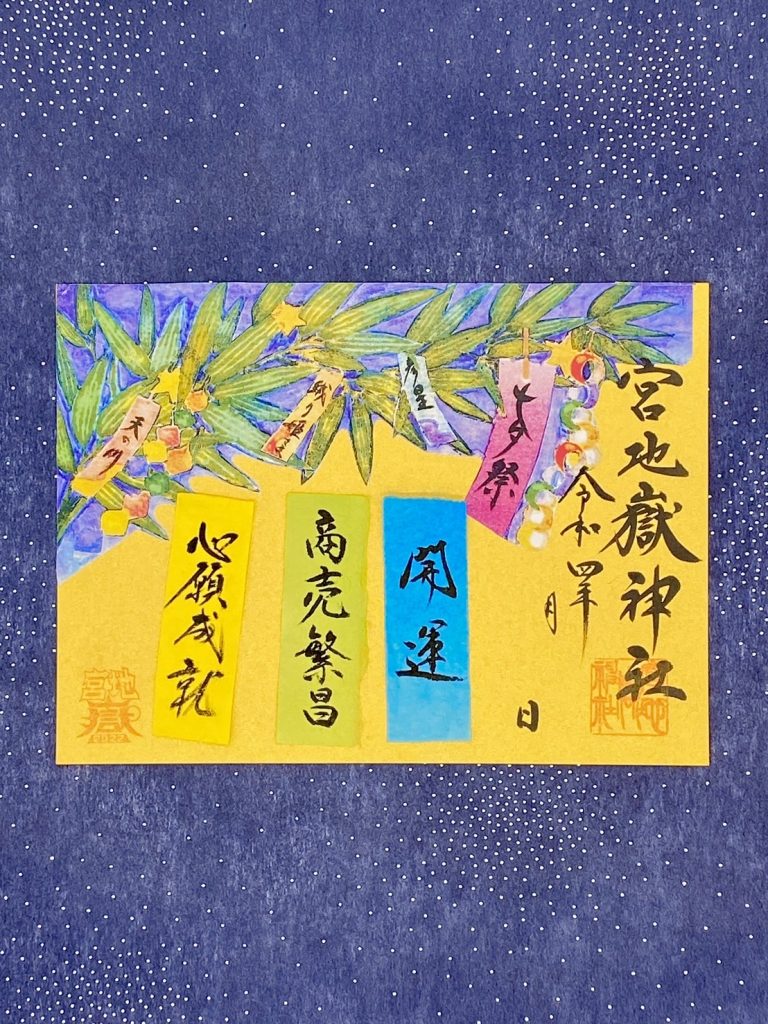 宮地嶽神社
令和四年
月
日
七夕祭
開運
商売繁昌
心願成就
織り姫
天の川
宮地
嶽